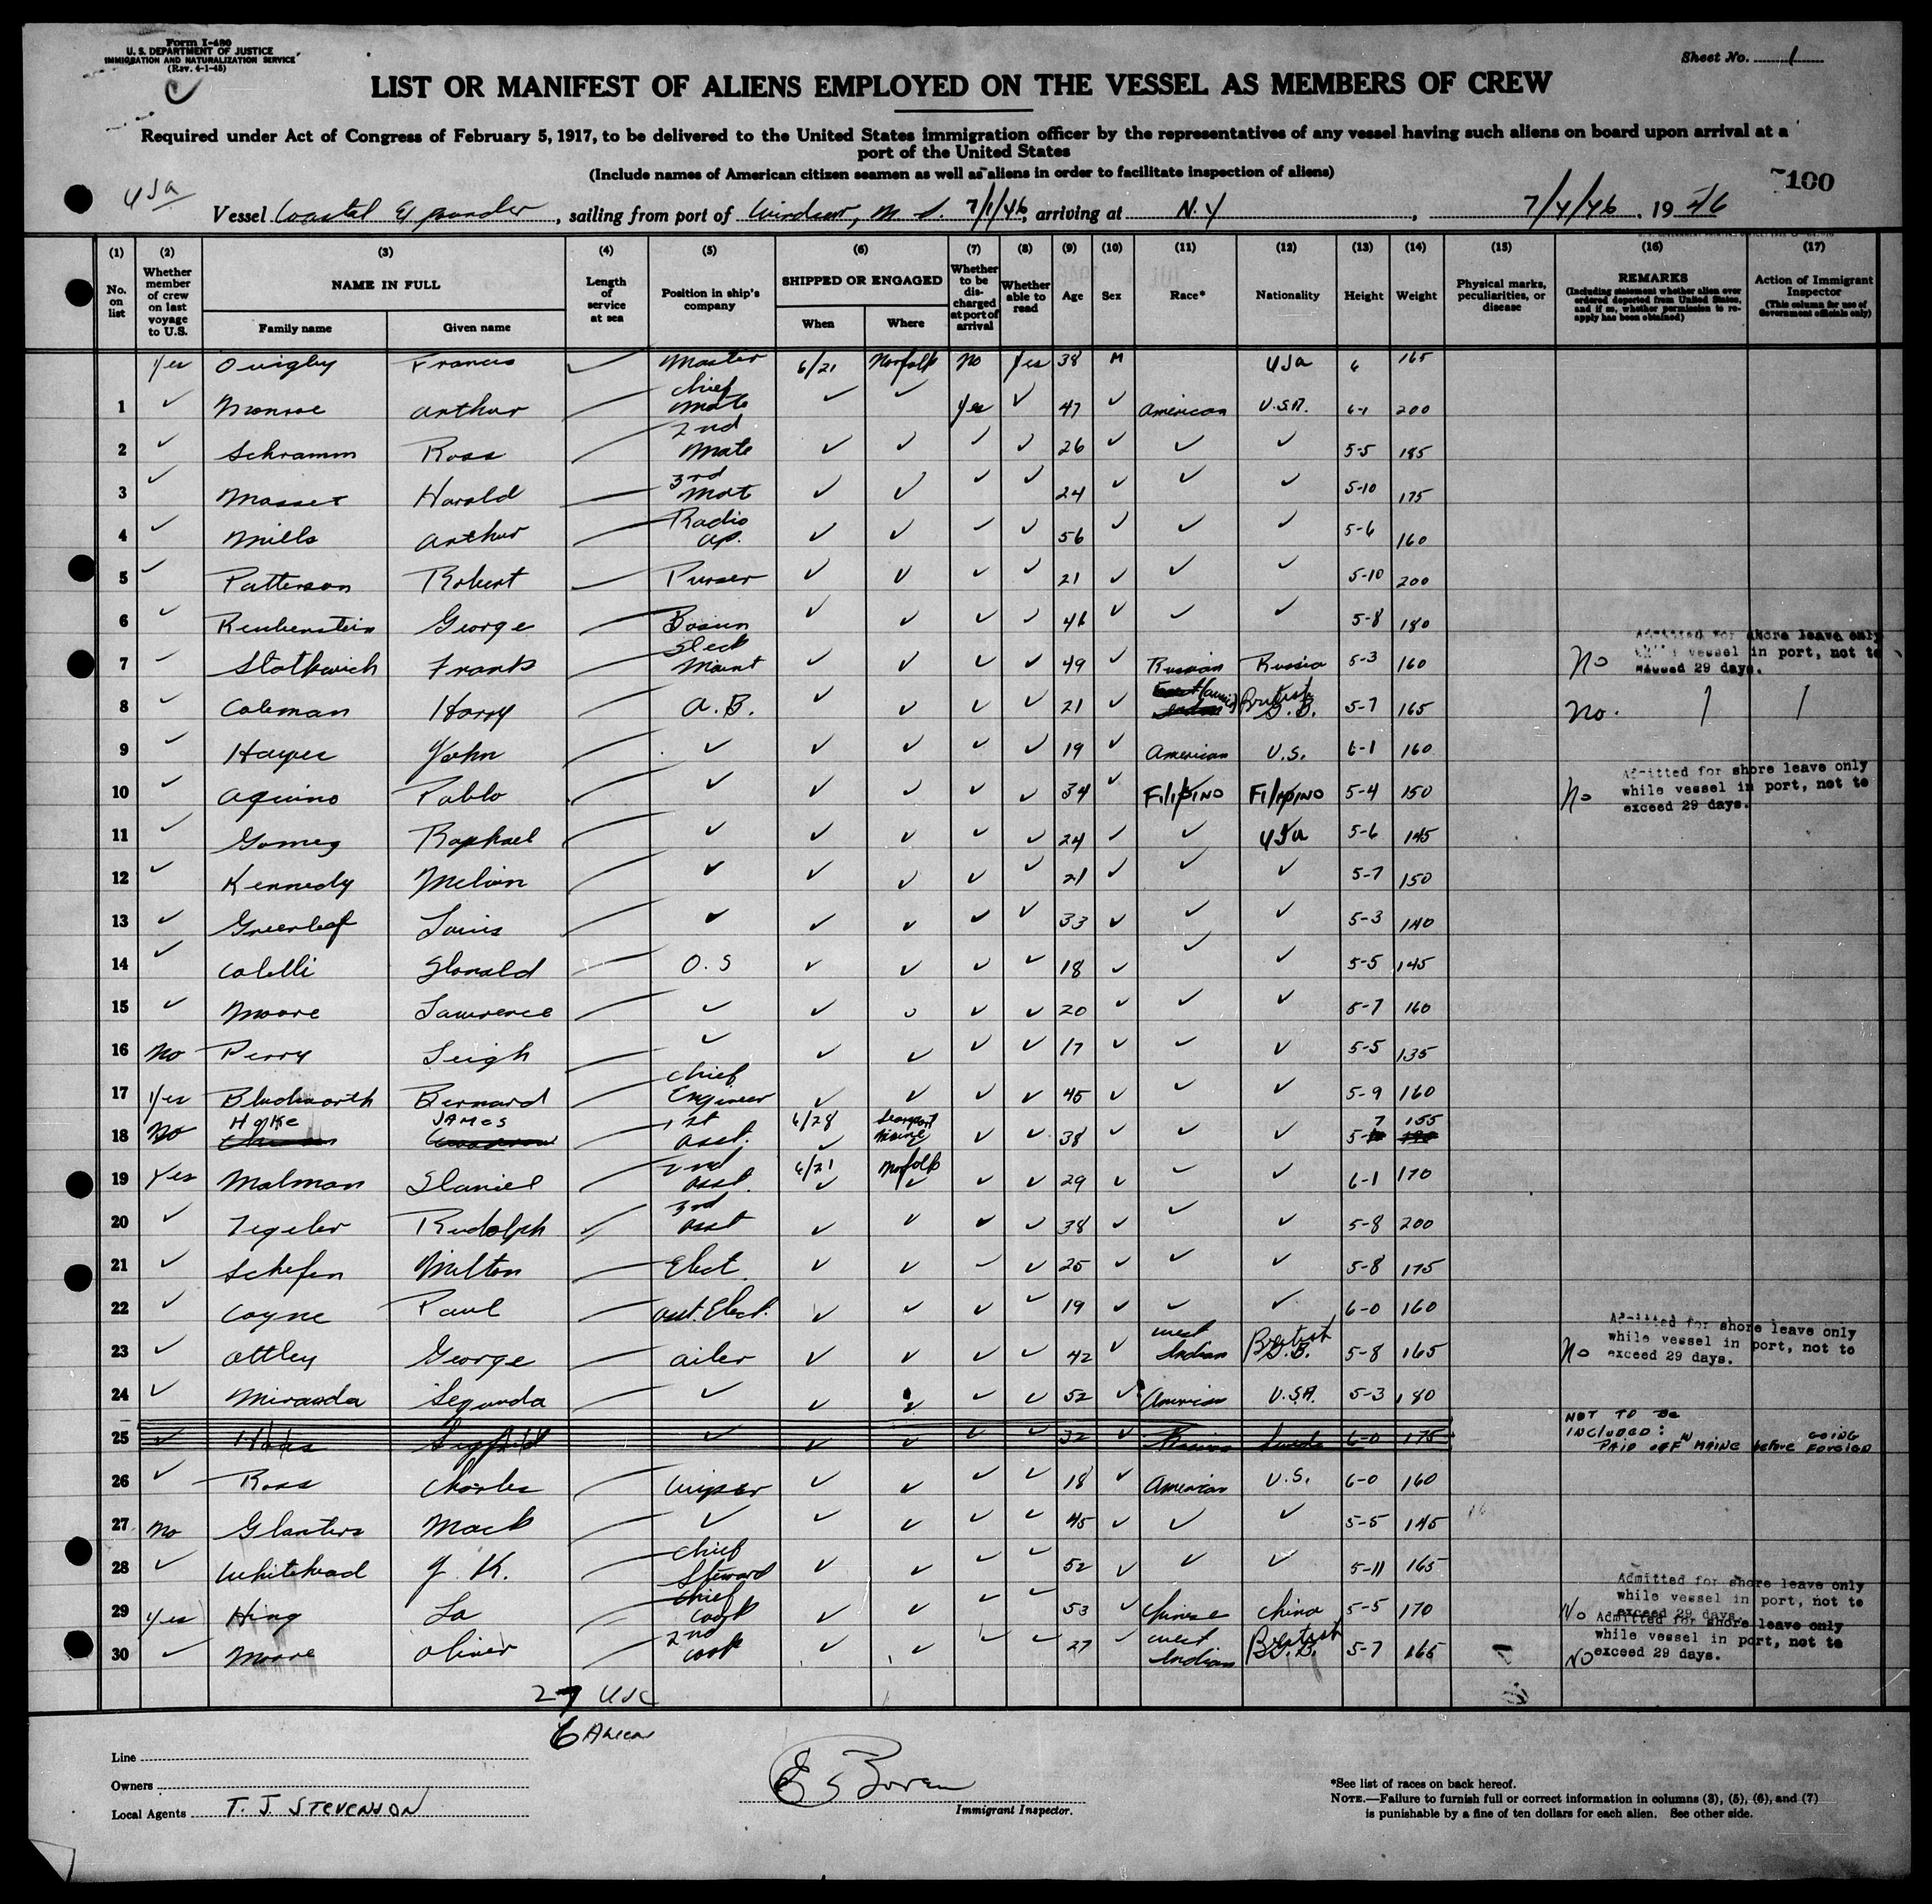 Form I-480
U. S. DEPARTMENT OF JUSTICE
IMMIGRATION AND NATURALIZATION SERVICE
(Rev. 4-1-45)
Sheet No. 1
LIST OR MANIFEST OF ALIENS EMPLOYED ON THE VESSEL AS MEMBERS OF CREW
Required under Act of Congress of February 5, 1917, to be delivered to the United States immigration officer by the representatives of any vessel having such aliens on board upon arrival at a
port of the United States
(Include names of American citizen seamen as well as aliens in order to facilitate inspection of aliens)
100
USA
Vessel Coastal Expounder, sailing from port of Windsor, N. S. 7/1/46, arriving at N.Y, 7/4/46, 1946
(1) (2) (3) (4) (5) (6) (7) (8) (9) (10) (11) (12) (13) (14) (15) (16) (17)
No. on list
Whether member of crew on last voyage to U.S.
NAME IN FULL
Family name
Given name
Length of service at sea
Position in ship's company
SHIPPED OR ENGAGED
When
Where
Whether to be discharged at port of arrival
Whether able to read
Age
Sex
Race*
Nationality
Height
Weight
Physical marks, peculiarities, or disease
REMARKS
(Including statement whether alien ever ordered deported from United States, and if so, whether permission to reapply has been obtained)
Action of Immigrant Inspector
(This column for use of Government officials only)
Yes Quigley Francis Master 6/21 Norfolk No Yes 38 M USA 6 165
1 ✓ Monroe Arthur Chief Mate ✓ ✓ Yes ✓ 47 ✓ American U.S.A. 6-1 200
2 ✓ Schramm Ross 2nd Mate ✓ ✓ ✓ ✓ 26 ✓ ✓ ✓ 5-5 185
3 ✓ Harold 3rd Mate ✓ ✓ ✓ ✓ 24 ✓ ✓ ✓ 5-10 175
4 ✓ Mills Arthur Radio Op. ✓ ✓ ✓ ✓ 56 ✓ ✓ ✓ 5-6 160
5 ✓ Patterson Robert Purser ✓ ✓ ✓ ✓ 21 ✓ ✓ ✓ 5-10 200
6 ✓ Reubenstein George Bosun ✓ ✓ ✓ ✓ 46 ✓ ✓ ✓ 5-8 180
7 ✓ Frank Deck Maint ✓ ✓ ✓ ✓ 49 ✓ Russian Russia 5-3 160 No Admitted for shore leave only while vessel in port, not to exceed 29 days.
8 ✓ Coleman Harry A.B. ✓ ✓ ✓ ✓ 21 ✓ British G.B. 5-7 165 No.
9 ✓ Hayes John ✓ ✓ ✓ ✓ ✓ 19 ✓ American U.S. 6-1 160
10 ✓ Aquino Pablo ✓ ✓ ✓ ✓ ✓ 34 ✓ Filipino Filipino 5-4 150 No Admitted for shore leave only while vessel in port, not to exceed 29 days.
11 ✓ Gomez Raphael ✓ ✓ ✓ ✓ ✓ 24 ✓ ✓ USA 5-6 145
12 ✓ Kennedy Melvin ✓ ✓ ✓ ✓ ✓ 21 ✓ ✓ ✓ 5-7 150
13 ✓ Greenleaf Louis ✓ ✓ ✓ ✓ ✓ 33 ✓ ✓ ✓ 5-3 140
14 ✓ Colelli Donald O.S ✓ ✓ ✓ ✓ 18 ✓ ✓ ✓ 5-5 145
15 ✓ Moore Lawrence ✓ ✓ ✓ ✓ ✓ 20 ✓ ✓ ✓ 5-7 160
16 No Perry Leigh ✓ ✓ ✓ ✓ ✓ 17 ✓ ✓ ✓ 5-5 135
17 Yes Bludworth Bernard Chief Engineer ✓ ✓ ✓ ✓ 45 ✓ ✓ ✓ 5-9 160
18 No Hoke James 1st Asst. 6/28 Searsport Maine ✓ ✓ 38 ✓ ✓ ✓ 5-7 155
19 Yes Malman Daniel 2nd Asst. 6/21 Norfolk ✓ ✓ 29 ✓ ✓ ✓ 6-1 170
20 ✓ Tegeler Rudolph 3rd Asst ✓ ✓ ✓ ✓ 38 ✓ ✓ ✓ 5-8 200
21 ✓ Schefen Milton Elect. ✓ ✓ ✓ ✓ 25 ✓ ✓ ✓ 5-8 175
22 ✓ Coyne Paul Asst. Elect. ✓ ✓ ✓ ✓ 19 ✓ ✓ ✓ 6-0 160
23 ✓ Ottley George Oiler ✓ ✓ ✓ ✓ 42 ✓ West Indian British G.B. 5-8 165 No Admitted for shore leave only while vessel in port, not to exceed 29 days.
24 ✓ Miranda Segunda ✓ ✓ ✓ ✓ ✓ 52 ✓ American U.S.A. 5-3 180
25 ✓ Haas ✓ ✓ ✓ ✓ ✓ 32 ✓ 6-0 175 NOT TO BE INCLUDED: PAID OFF IN MAINE before GOING FOREIGN
26 ✓ Ross Charles Wiper ✓ ✓ ✓ ✓ 18 ✓ American U.S. 6-0 160
27 No Glanters Mack ✓ ✓ ✓ ✓ ✓ 45 ✓ ✓ ✓ 5-5 145
28 ✓ Whitehead J. K. Chief Steward ✓ ✓ ✓ ✓ 52 ✓ ✓ ✓ 5-11 165
29 Yes Hing La Chief Cook ✓ ✓ ✓ ✓ 53 ✓ Chinese China 5-5 170 No Admitted for shore leave only while vessel in port, not to exceed 29 days.
30 ✓ Moore Oliver 2nd Cook ✓ ✓ ✓ ✓ 27 ✓ West Indian British G.B. 5-7 165 No Admitted for shore leave only while vessel in port, not to exceed 29 days.
27 USC
6 Alien
Line
Owners
Local Agents T. J. STEVENSON
Immigrant Inspector.
*See list of races on back hereof.
NOTE.—Failure to furnish full or correct information in columns (3), (5), (6), and (7)
is punishable by a fine of ten dollars for each alien. See other side.